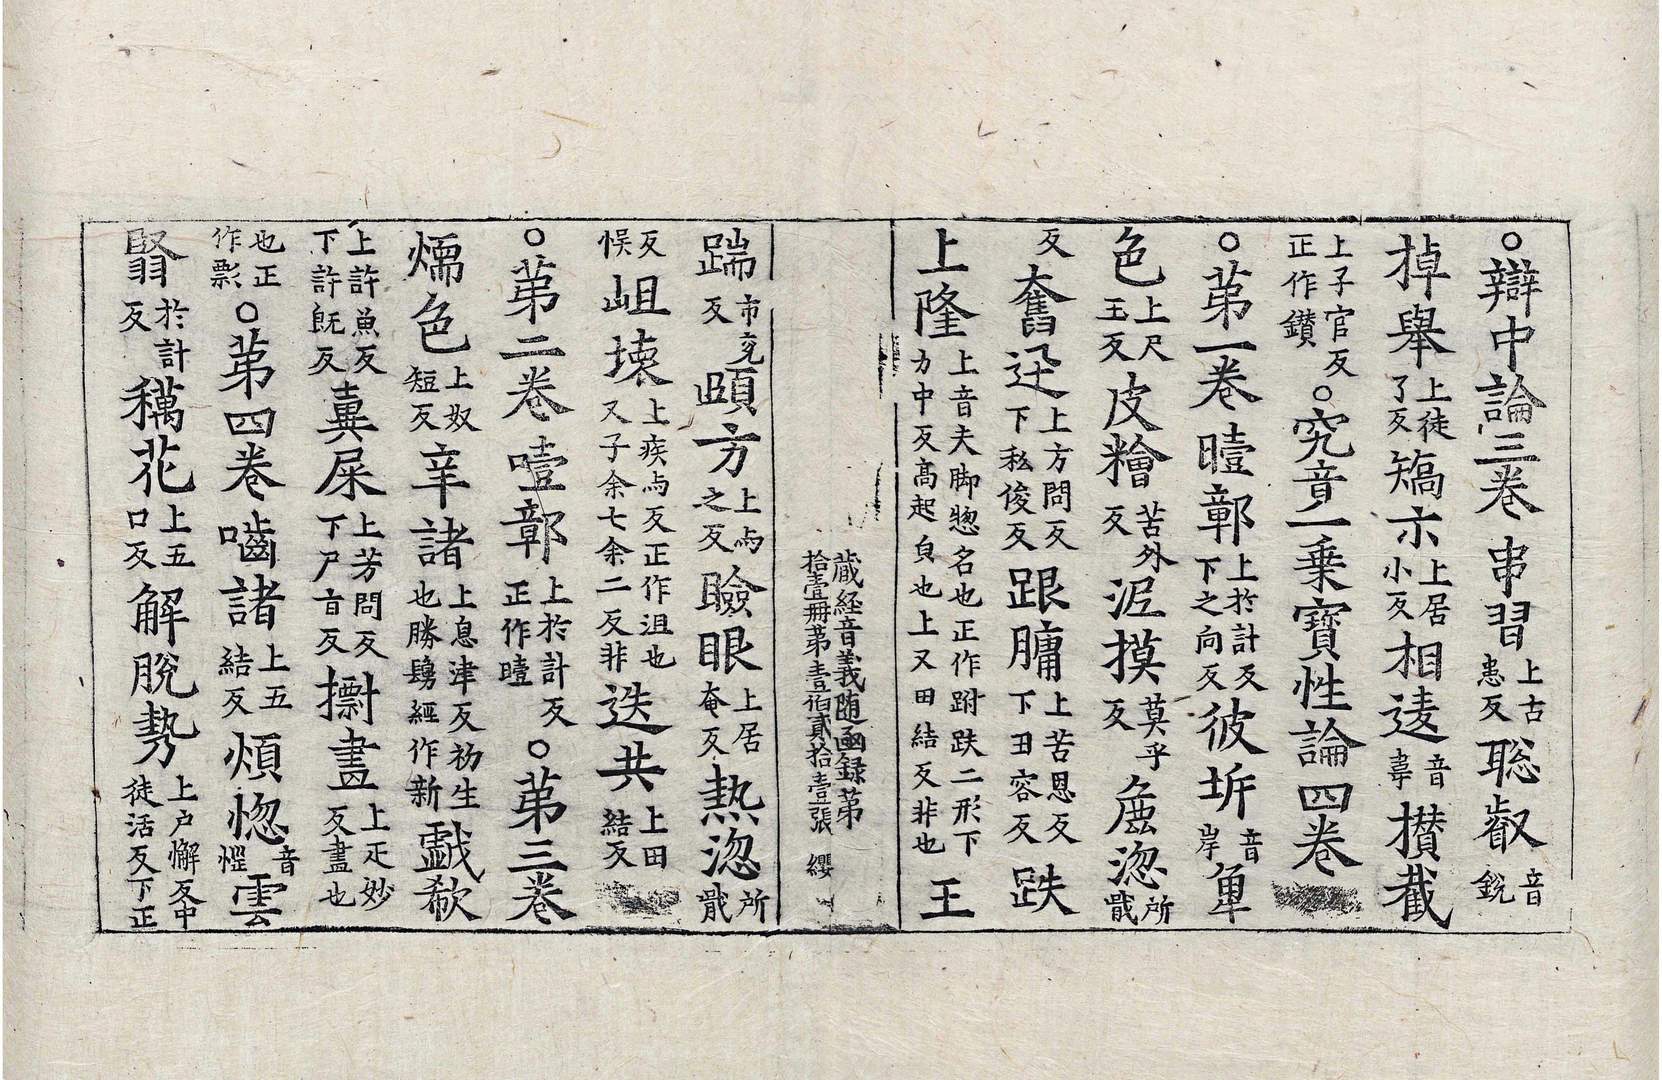 ○辯中論三卷 串習上古患反聡叡音銳
掉舉上徒了反矯示上居小反相違音韋攅截
上子官反正作鑚○究竟一乗寶性論四卷
○苐一卷曀鄣上於計反下之向反彼坼音岸
色上尺玉反皮糩苦外反泥摸莫乎反麁澀所戢
反奮迅上方問反下私俊反跟𦟛上苦恩反下丑容反跌
上隆上音夫脚惣名也正作跗趺二形下力中反髙起皃也上又田結反非也王
蔵経音義随函録苐拾壹冊苐壹伯貳拾壹張 纓
踹市兖反頤方上与之反瞼眼上居奄反熱澀所戢
反悮岨壊上疾与反正作沮也又子余七余二反非迭共上田結反
○苐二卷曀鄣上於計反正作曀○苐三卷
煗色上奴短反辛諸上息津反初生也勝鬘經作新戯欷
上許魚反下許旣反糞屎上芳問反下尸旨反擲晝上疋妙反晝也
也正作影○苐四卷嚙諸上五結反煩惚音慛雲
翳於計反䅿花上五口反解脫勢上户懈反中徒活反下正